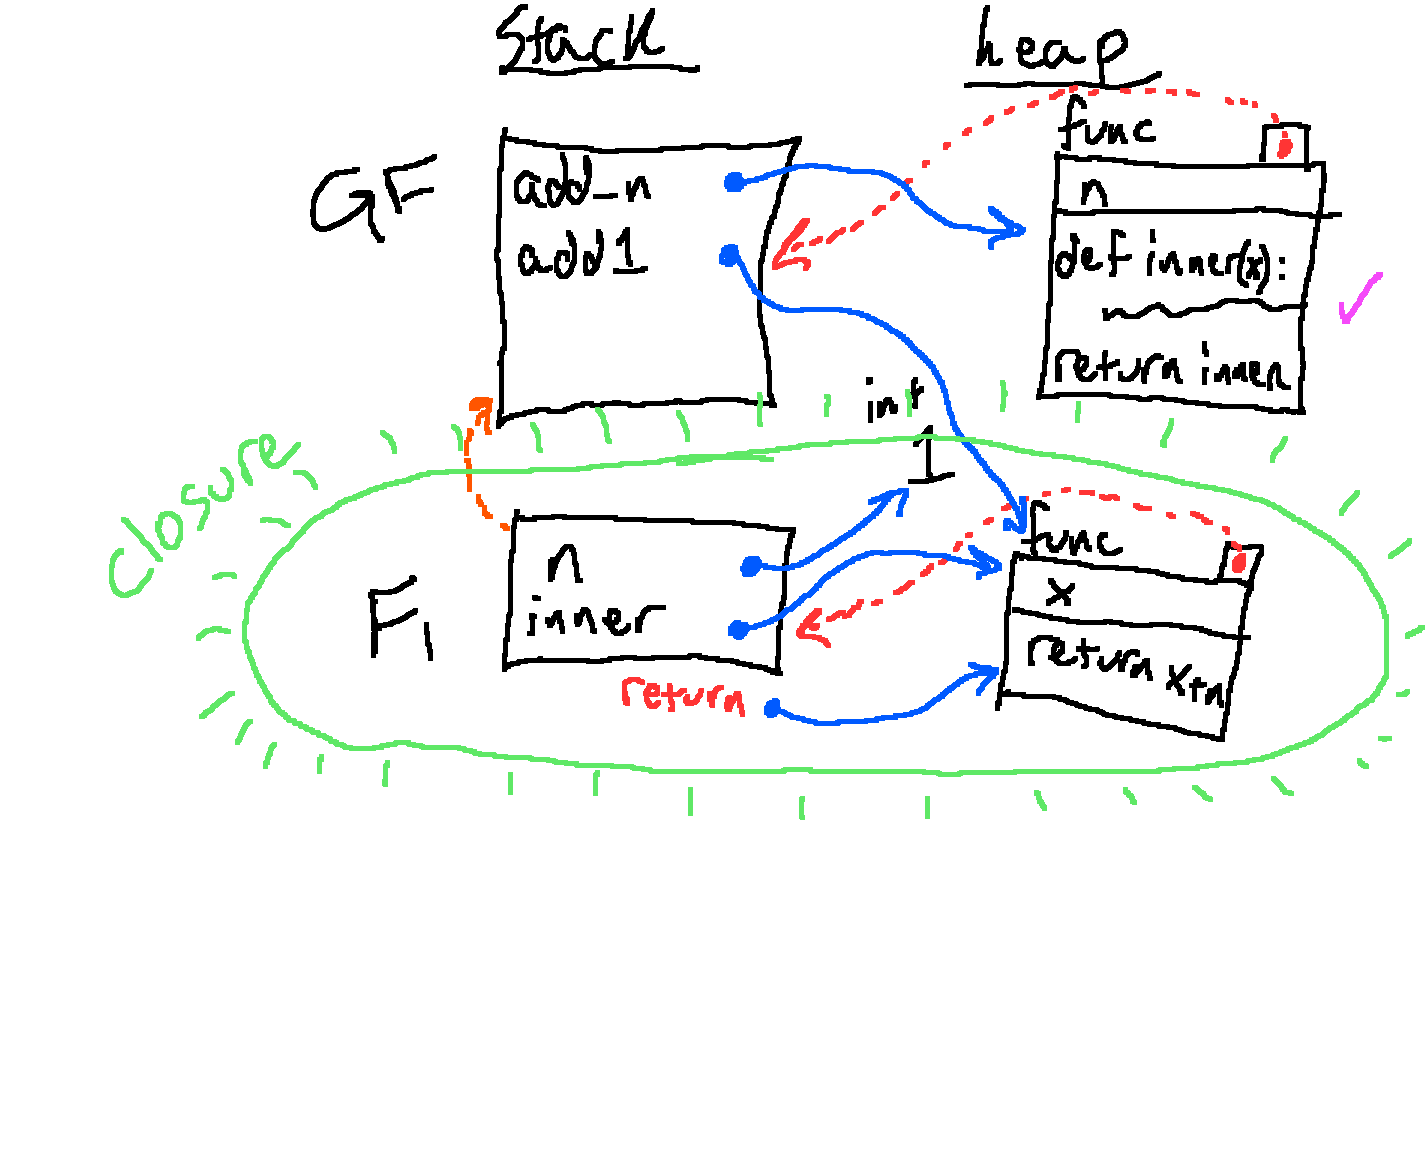 Stack
heap
GF
add_n
add1
func
n
def inner(x):
return inner
closure
int
1
F1
n
inner
return
func
x
return x+n